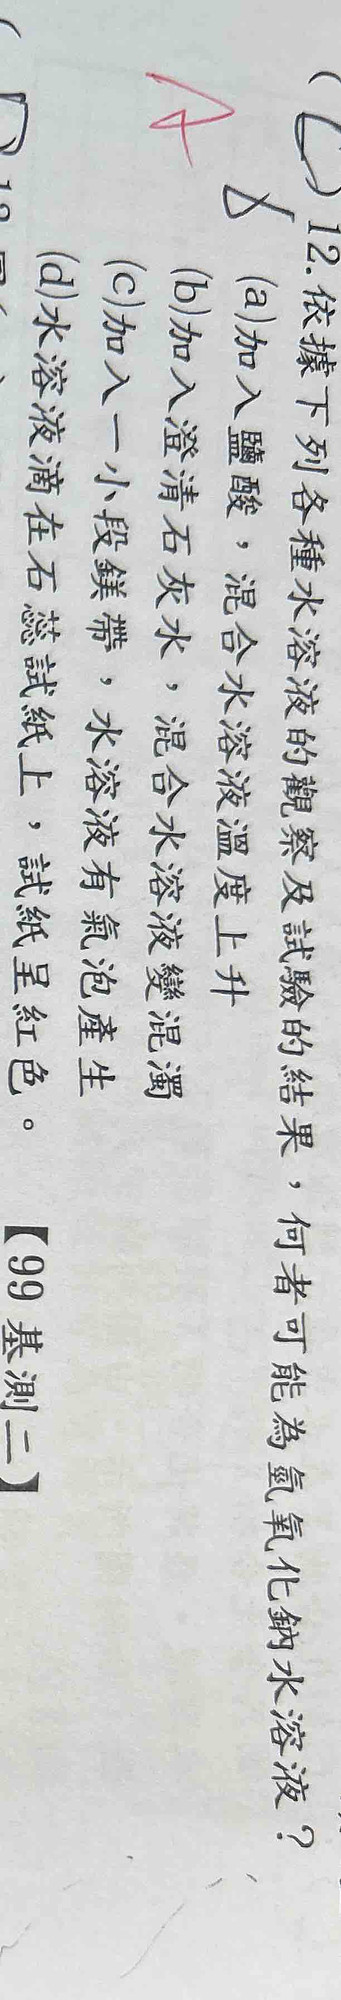 (C)12.依據下列各種水溶液的觀察及試驗的結果，何者可能為氫氧化鈉水溶液？
(a)加入鹽酸，混合水溶液溫度上升
(b)加入澄清石灰水，混合水溶液變混濁
(c)加入一小段鎂帶，水溶液有氣泡產生
(d)水溶液滴在石蕊試紙上，試紙呈紅色。
【99基測二】
A